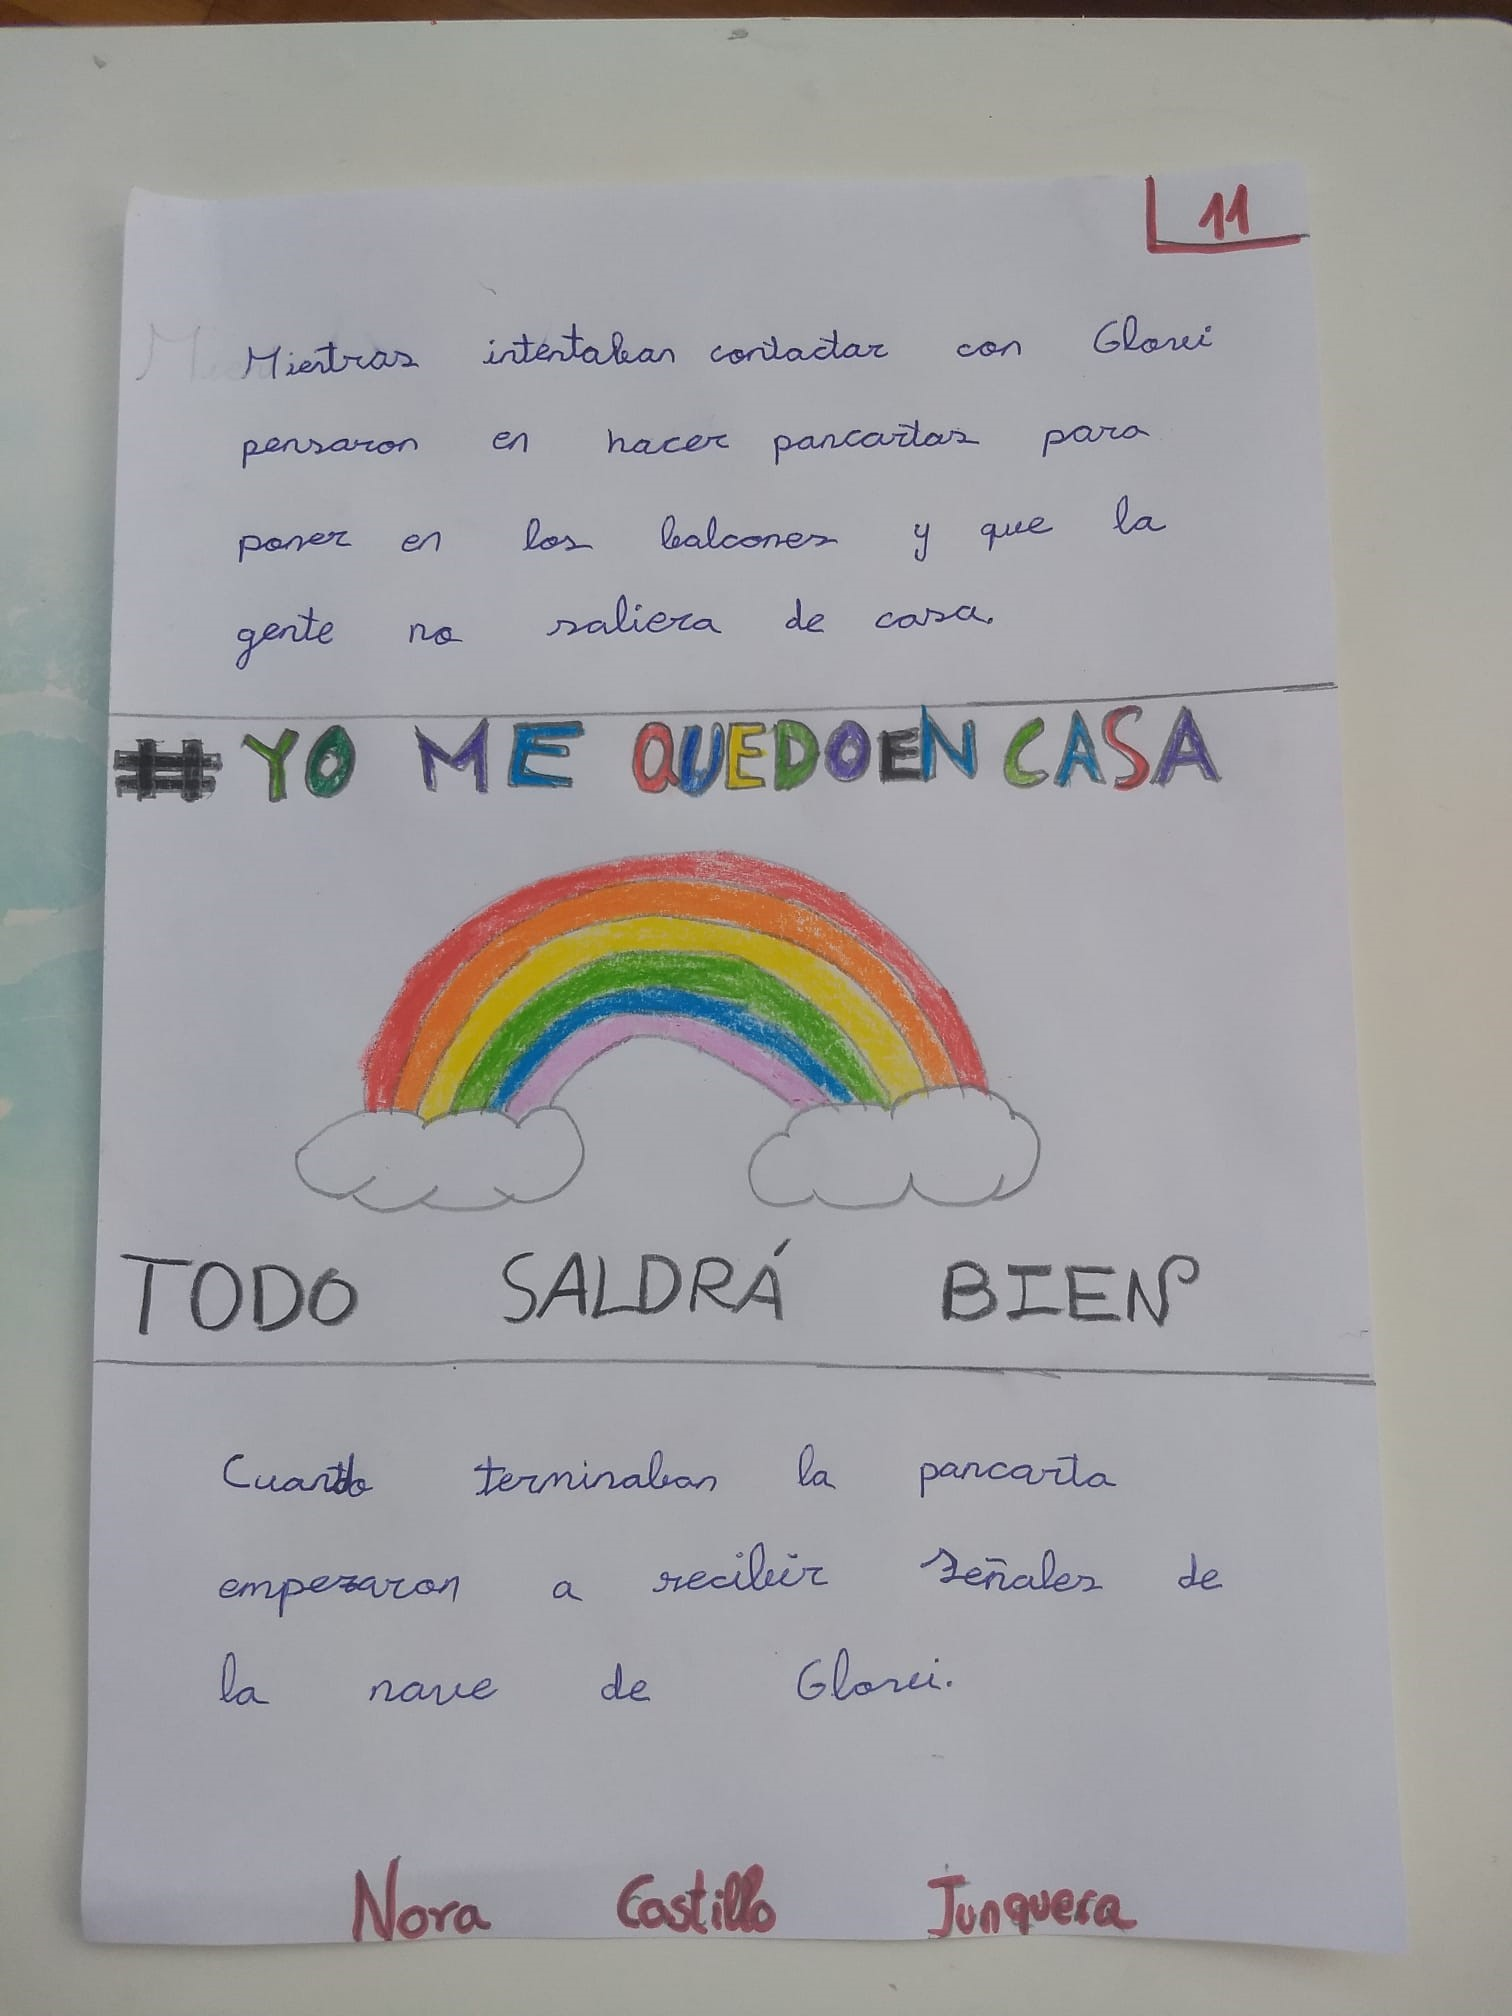 11
Mientras intentaban contactar con Glorei
pensaron en hacer pancartas para
poner en los balcones y que la
gente no saliera de casa.
#YO ME QUEDO EN CASA
TODO SALDRÁ BIEN
Cuando terminaban la pancarta
empezaron a recibir señales de
la nave de Glorei.
Nora Castillo Junquera